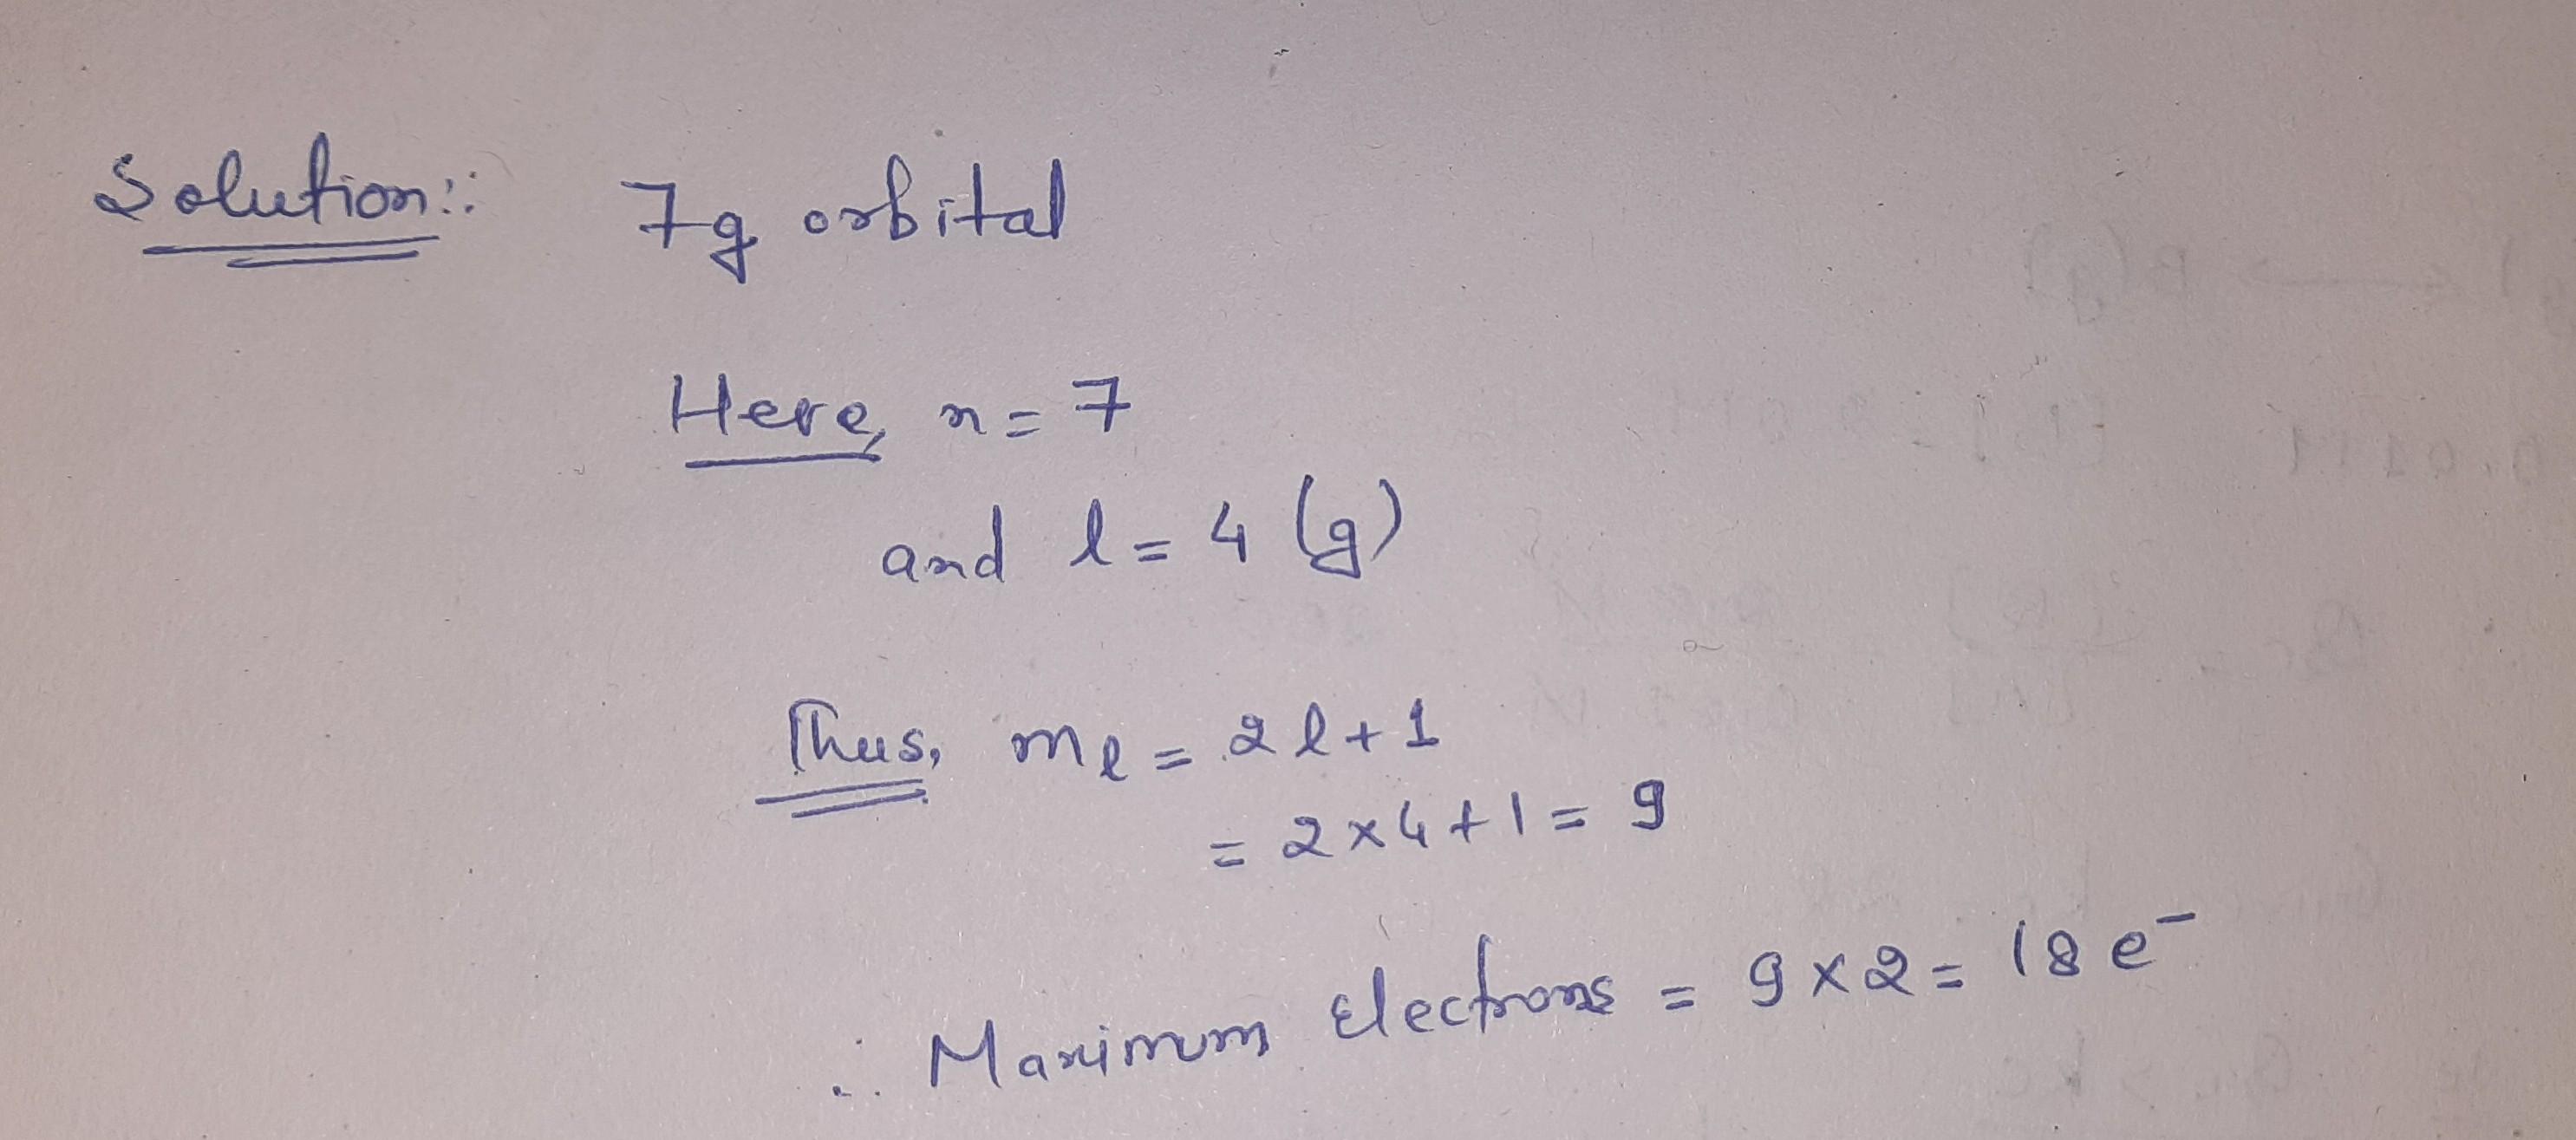 Solution:: 7g orbital
Here, n=7
and l=4 (g)
Thus, mₗ = 2l+1
= 2×4+1=9
∴ Maximum electrons = 9×2= 18e⁻